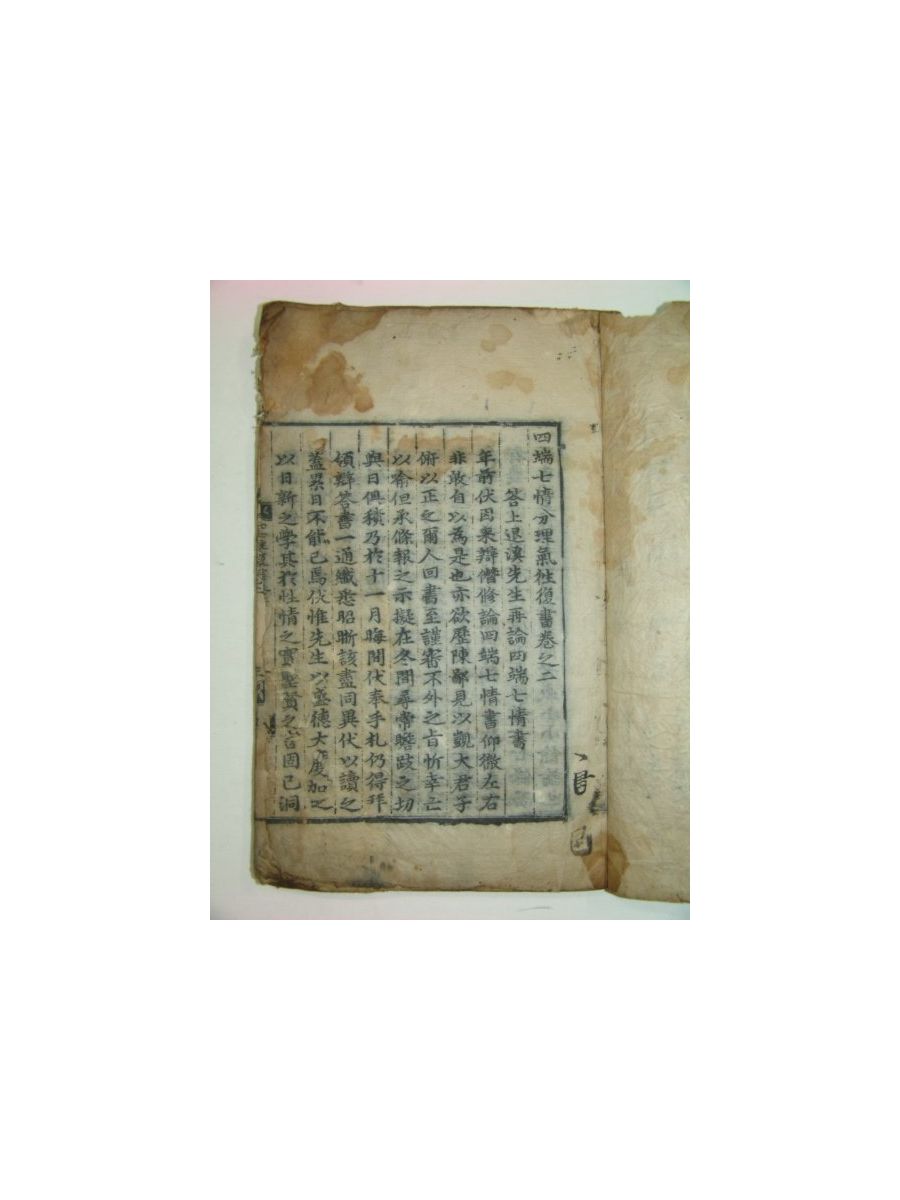 四端七情分理氣往復書卷之二
答上退溪先生再論四端七情書
年前伏因來辯僭修論四端七情書仰徹左右
非敢自以爲是也亦欲歷陳鄙見以觀大君子
俯以正之爾人回書至謹審不外之旨忻幸亡
以喻但承條報之示擬在冬間尋常瞻跂之切
與日俱積乃於十一月晦間伏奉手札仍得拜
領辯答書一通纖悉昭晣該盡同異伏以讀之
蓋累日不能已焉伏惟先生以盛德大度加之
以日新之學其於性情之實聖賢之言固已洞